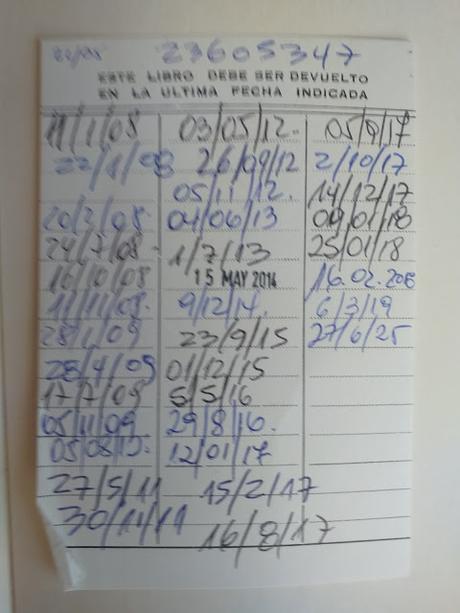 23605347
ESTE LIBRO DEBE SER DEVUELTO
EN LA ULTIMA FECHA INDICADA
11/1/08
22/1/08
20/2/08
24/7/08
16/10/08
11/11/08
28/1/09
28/4/09
17/7/09
05/11/09
05/08/10
27/5/11
30/11/11
03/05/12
26/09/12
05/11/12
04/06/13
1/7/13
15 MAY 2014
9/12/14
23/9/15
01/12/15
5/5/16
29/8/16
12/01/17
15/2/17
16/8/17
05/9/17
2/10/17
14/12/17
09/01/18
25/01/18
16.02.
6/3/19
27/6/25